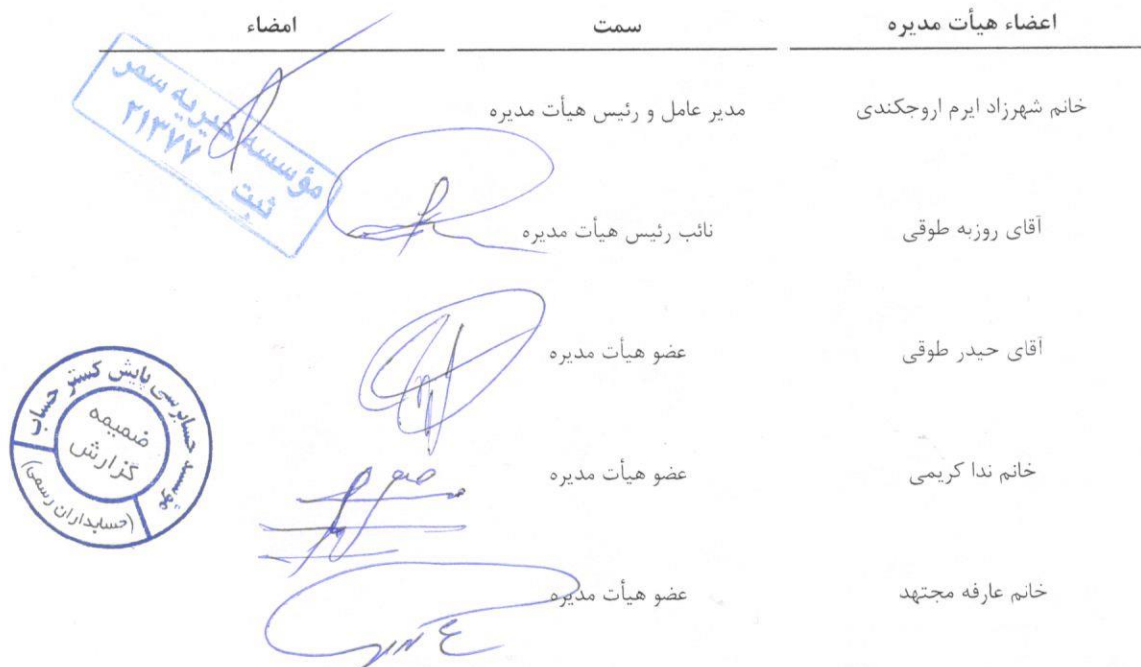 اعضاء هیأت مدیره سمت امضاء
خانم شهرزاد ایرم اروجکندی مدیر عامل و رئیس هیأت مدیره
مؤسسه خیریه سمر
۲۱۳۷۷
ثبت
آقای روزبه طوقی نائب رئیس هیأت مدیره
آقای حیدر طوقی عضو هیأت مدیره
خانم ندا کریمی عضو هیأت مدیره
خانم عارفه مجتهد عضو هیأت مدیره
موسسه حسابرسی پایش گستر حساب
ضمیمه
گزارش
(حسابداران رسمی)